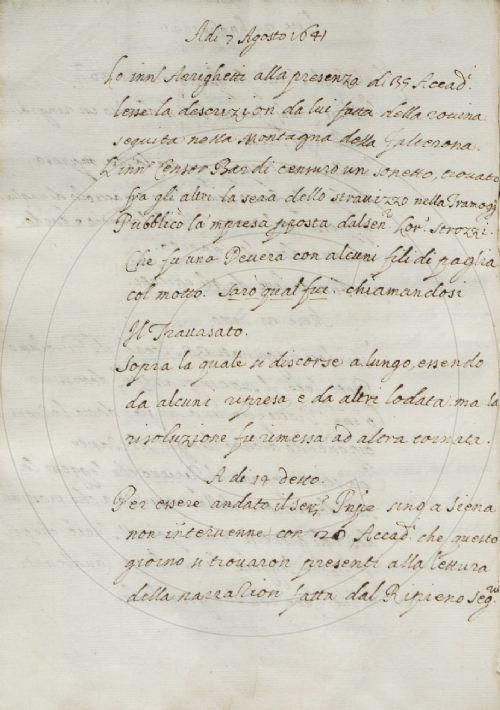 Adi 7 Agosto 1641
Lo inn.º Arrighetti alla presenza di 35 Accad.
lesse la descrizion da lui fatta della rovina
seguita nella Montagna della Falterona.
L'inn.º Censor Bardi censurò un sonetto, trovato
fra gli altri la sera dello stravizzo nella Tramog.
Pubblicò la mpresa pposta dal sen.re Lor.º Strozzi.
Che fu una Pevera con alcuni fili di paglia
col motto. Sarò qual fui. chiamandosi
Il Travasato.
Sopra la quale si discorse a lungo, essendo
da alcuni ripresa e da altri lodata. ma la
risoluzione fu rimessa ad altra tornata.
A di 19 detto.
Per essere andato il Ser.º a Siena
non intervenne con Accad. che questo
giorno si trovaron presenti alla lettura
della narrazion fatta dal Ripieno seg.